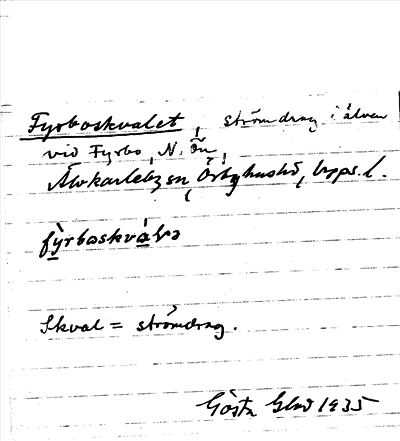 Fyrboskvalet, strömdrag i älven
vid Fyrbo, N. Ön,
Älvkarleby sn, Örbyhushd, Upps. l.
Skval = strömdrag.
Gösta Glad 1935